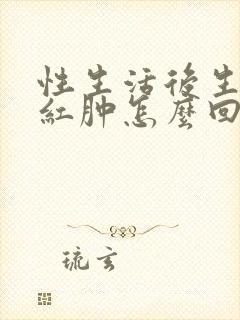 性生活後生
紅肿怎麼回
琉玄